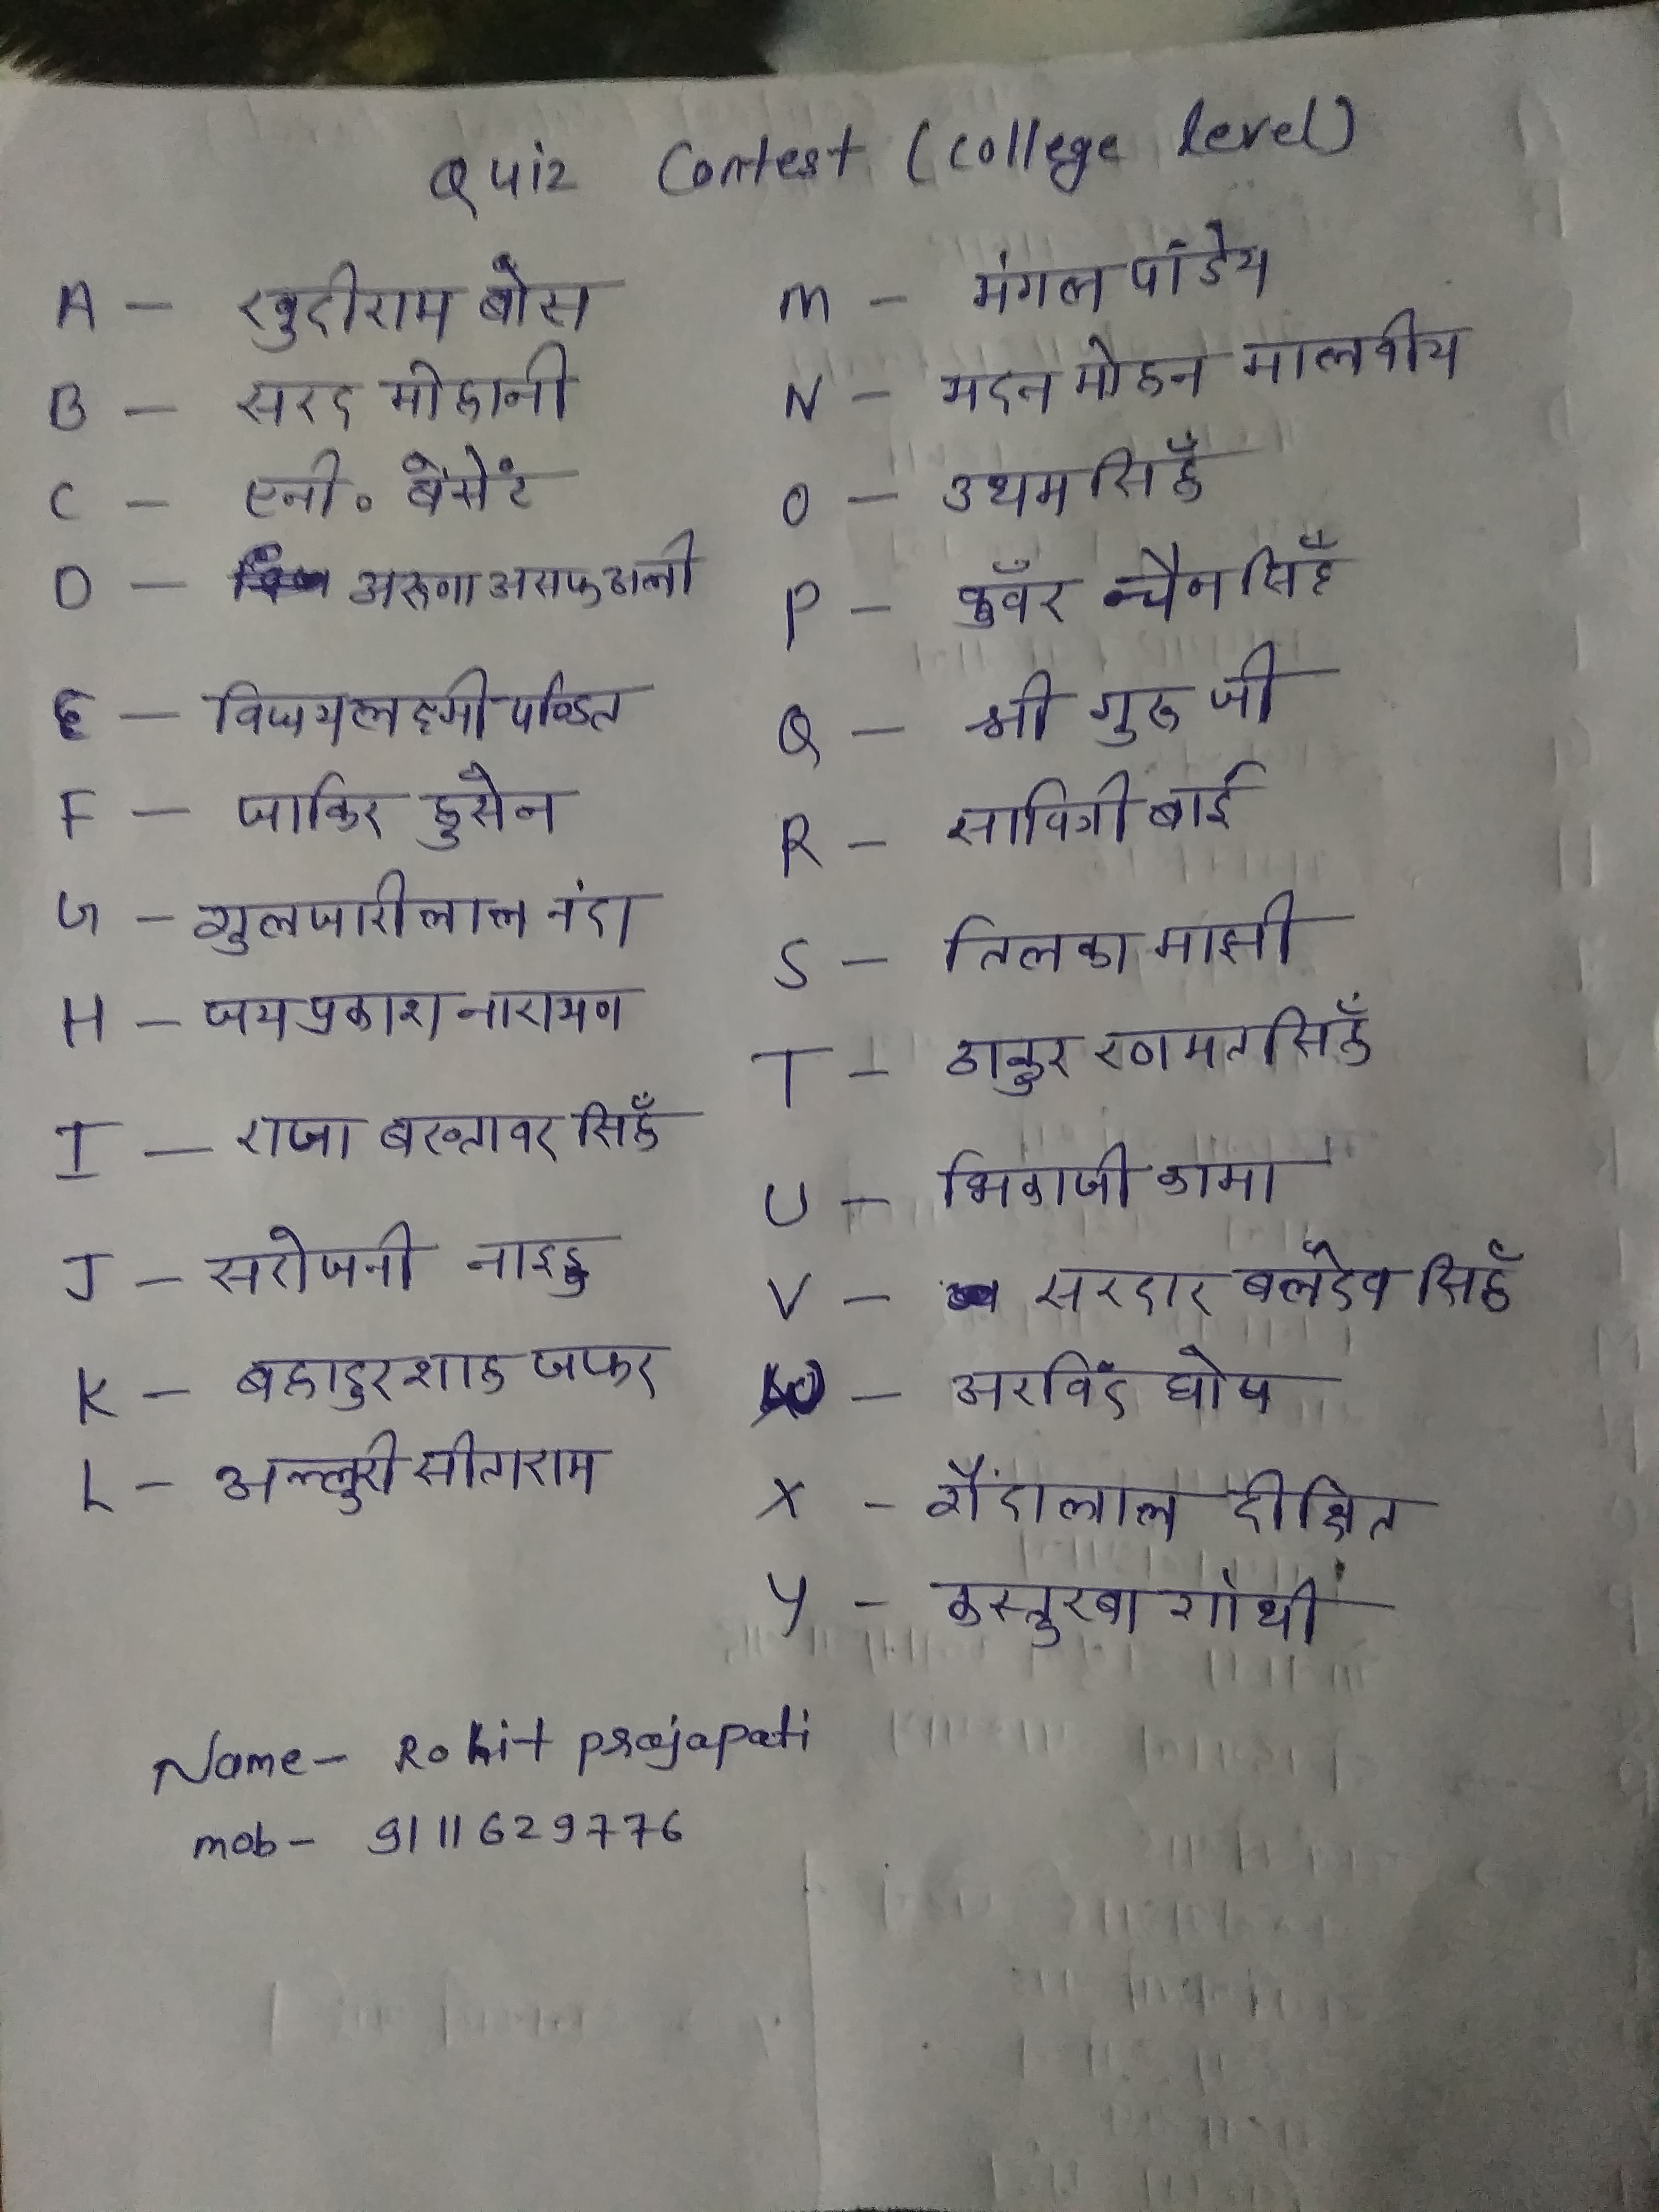 Quiz Contest (college level)
A — खुदीराम बोस
B — सरद मोहानी
C — एनी० बेंसेंट
D — अरूणा असफ अली
E — विजयलक्ष्मी पण्डित
F — जाकिर हुसेन
G — गुलजारीलाल नंदा
H — जयप्रकाश नारायण
I — राजा बख्तावर सिहँ
J — सरोजनी नाइडु
K — बहादुरशाह जफर
L — अल्लुरी सीताराम
M — मंगल पांडेय
N — मदन मोहन मालवीय
O — उधम सिहँ
P — कुवँर चैन सिहँ
Q — श्री गुरू जी
R — सावित्री बाई
S — तिलका माझी
T — ठाकुर रणमत सिहँ
U — भिकाजी कामा
V — सरदार बलदेव सिहँ
W — अरविंद घोष
X — गैंदालाल दीक्षित
Y — कस्तुरबा गांधी
Name — Rohit prajapati
mob — 9111629776